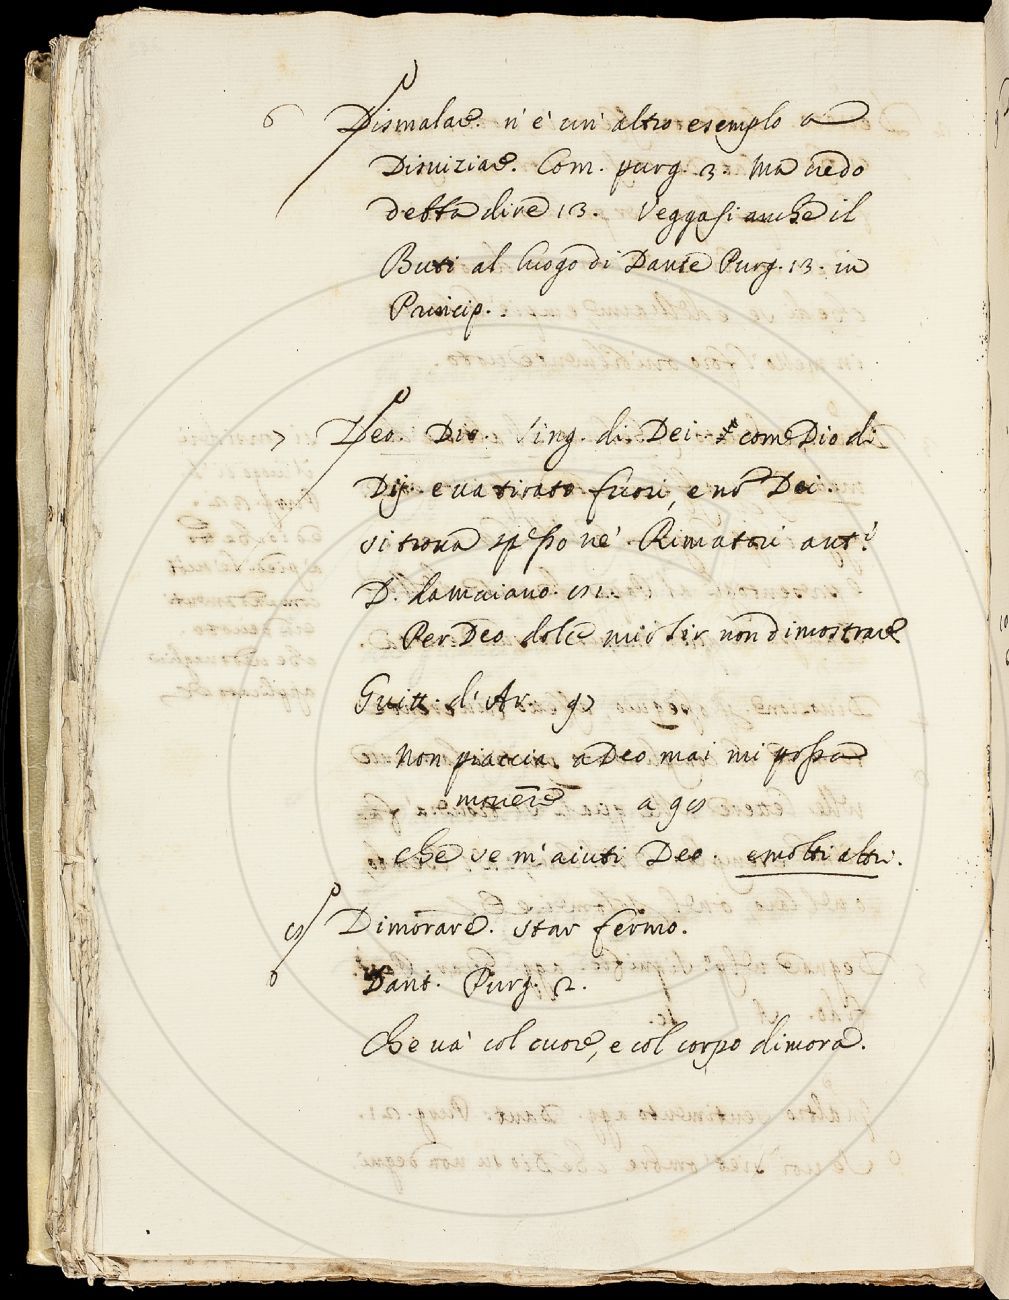 6 Dismalare. n'è un' altro esempio a
Disviziare. Com. purg. 3. Ma credo
debba dire 13. Veggasi anche il
Buti al luogo di Dante Purg. 13. in
Princip.
7 Deo. Dio. Sing. di Dei come Dio di
Dij. e va tirato fuori, e nō Dei.
si trova spesso ne' Rimatori ant.i
D. da Maiano.
Per Deo dolce mio sir non dimostrare
Guitt. d' Ar. 97
Non piaccia a Deo mai mi possa
movere a 98
Che se m'aiuti Deo. e molti altri.
8 Dimorare. star fermo.
Dant. Purg. 2.
Che va' col cuore, e col corpo dimora.